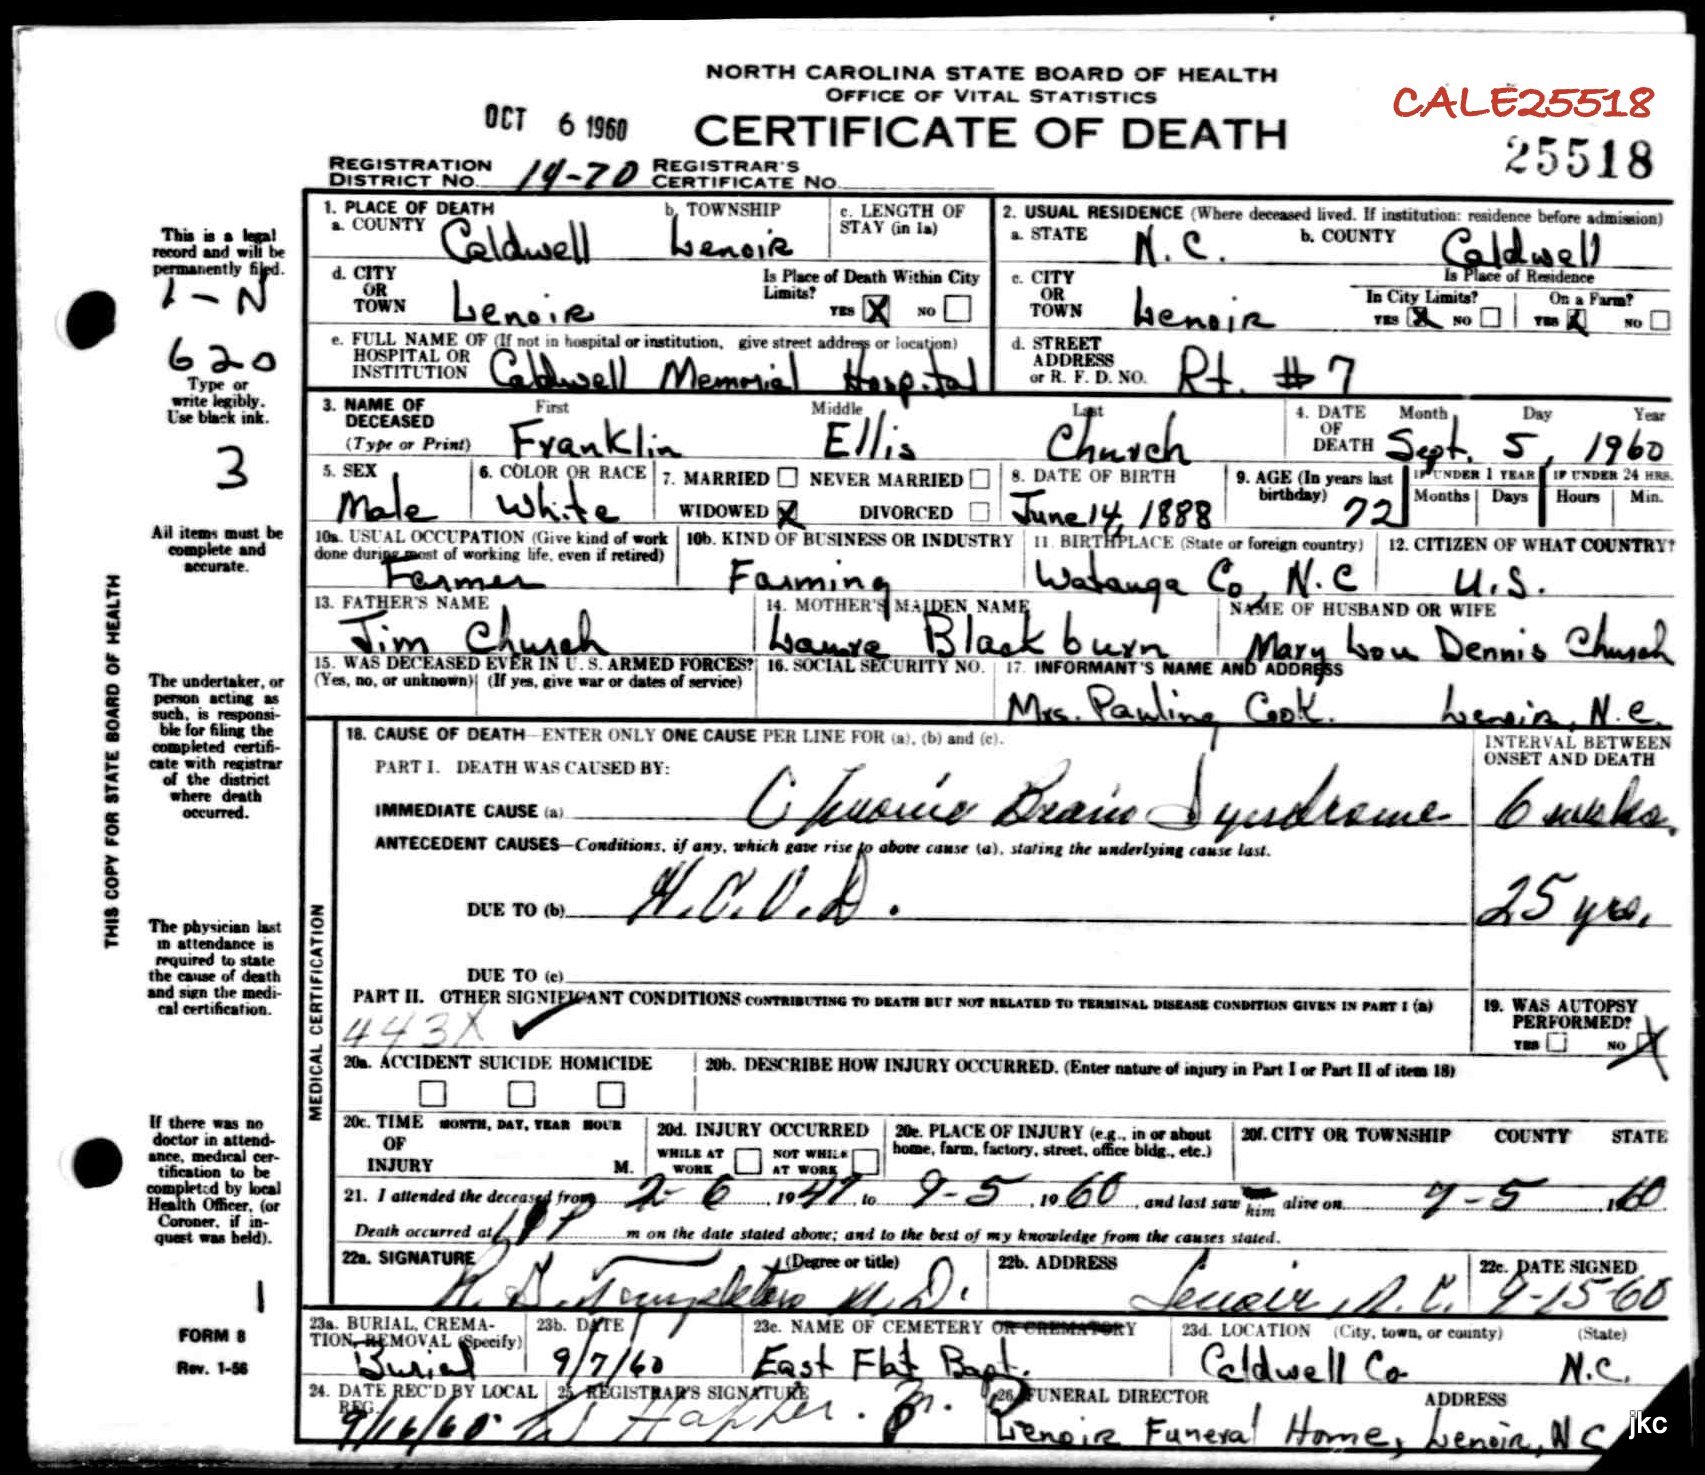 NORTH CAROLINA STATE BOARD OF HEALTH
OFFICE OF VITAL STATISTICS
CALE25518
OCT 6 1960
CERTIFICATE OF DEATH
25518
REGISTRATION DISTRICT NO. 14-70 REGISTRAR'S CERTIFICATE NO.
This is a legal record and will be permanently filed.
1-N
620
Type or write legibly. Use black ink.
3
All items must be complete and accurate.
THIS COPY FOR STATE BOARD OF HEALTH
The undertaker, or person acting as such, is responsible for filing the completed certificate with registrar of the district where death occurred.
The physician last in attendance is required to state the cause of death and sign the medical certification.
If there was no doctor in attendance, medical certification to be completed by local Health Officer, (or Coroner, if inquest was held).
1
FORM 8
Rev. 1-56
1. PLACE OF DEATH
a. COUNTY Caldwell b. TOWNSHIP Lenoir c. LENGTH OF STAY (in 1a)
2. USUAL RESIDENCE (Where deceased lived. If institution: residence before admission)
a. STATE N.C. b. COUNTY Caldwell
d. CITY OR TOWN Lenoir Is Place of Death Within City Limits? YES X NO
c. CITY OR TOWN Lenoir Is Place of Residence In City Limits? YES X NO On a Farm? YES X NO
e. FULL NAME OF (If not in hospital or institution, give street address or location) HOSPITAL OR INSTITUTION Caldwell Memorial Hospital
d. STREET ADDRESS or R. F. D. NO. Rt. #7
3. NAME OF DECEASED (Type or Print) First Franklin Middle Ellis Last Church
4. DATE OF DEATH Month Day Year Sept. 5, 1960
5. SEX Male
6. COLOR OR RACE White
7. MARRIED NEVER MARRIED WIDOWED X DIVORCED
8. DATE OF BIRTH June 14, 1888
9. AGE (In years last birthday) 72 IF UNDER 1 YEAR Months Days IF UNDER 24 HRS. Hours Min.
10a. USUAL OCCUPATION (Give kind of work done during most of working life, even if retired) Farmer
10b. KIND OF BUSINESS OR INDUSTRY Farming
11. BIRTHPLACE (State or foreign country) Watauga Co., N.C
12. CITIZEN OF WHAT COUNTRY? U.S.
13. FATHER'S NAME Jim Church
14. MOTHER'S MAIDEN NAME Laura Blackburn
NAME OF HUSBAND OR WIFE Mary Lou Dennis Church
15. WAS DECEASED EVER IN U. S. ARMED FORCES? (Yes, no, or unknown) (If yes, give war or dates of service)
16. SOCIAL SECURITY NO.
17. INFORMANT'S NAME AND ADDRESS Mrs. Pauling Cook. Lenoir, N.C.
MEDICAL CERTIFICATION
18. CAUSE OF DEATH—ENTER ONLY ONE CAUSE PER LINE FOR (a), (b) and (c).
INTERVAL BETWEEN ONSET AND DEATH
PART I. DEATH WAS CAUSED BY:
IMMEDIATE CAUSE (a) Chronic Brain Syndrome 6 weeks.
ANTECEDENT CAUSES—Conditions, if any, which gave rise to above cause (a), stating the underlying cause last.
DUE TO (b) H.C.V.D. 25 yrs.
DUE TO (c)
PART II. OTHER SIGNIFICANT CONDITIONS CONTRIBUTING TO DEATH BUT NOT RELATED TO TERMINAL DISEASE CONDITION GIVEN IN PART I (a)
443X
19. WAS AUTOPSY PERFORMED? YES NO X
20a. ACCIDENT SUICIDE HOMICIDE
20b. DESCRIBE HOW INJURY OCCURRED. (Enter nature of injury in Part I or Part II of item 18)
20c. TIME OF INJURY MONTH, DAY, YEAR HOUR M.
20d. INJURY OCCURRED WHILE AT WORK NOT WHILE AT WORK
20e. PLACE OF INJURY (e.g., in or about home, farm, factory, street, office bldg., etc.)
20f. CITY OR TOWNSHIP COUNTY STATE
21. I attended the deceased from 2-6, 1947 to 9-5, 1960, and last saw him alive on 9-5, 1960
Death occurred at P m on the date stated above; and to the best of my knowledge from the causes stated.
22a. SIGNATURE (Degree or title) Templeton M.D.
22b. ADDRESS Lenoir, N.C.
22c. DATE SIGNED 9-15-60
23a. BURIAL, CREMATION, REMOVAL (Specify) Burial
23b. DATE 9/7/60
23c. NAME OF CEMETERY OR CREMATORY East Flat Bapt.
23d. LOCATION (City, town, or county) (State) Caldwell Co N.C.
24. DATE REC'D BY LOCAL REG. 9/16/60
25. REGISTRAR'S SIGNATURE
26. FUNERAL DIRECTOR ADDRESS Lenoir Funeral Home, Lenoir, N C
jkc